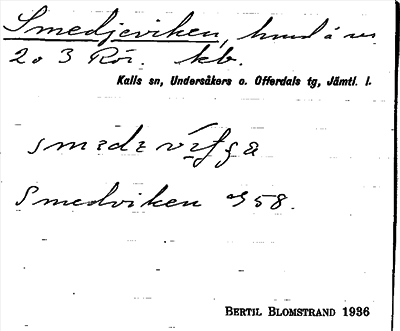 Smedjeviken, hmd å nr
2 o 3 Rör. kb.
Kalls sn, Undersåkers o. Offerdals tg, Jämtl. l.
Smedviken G 58.
BERTIL BLOMSTRAND 1936